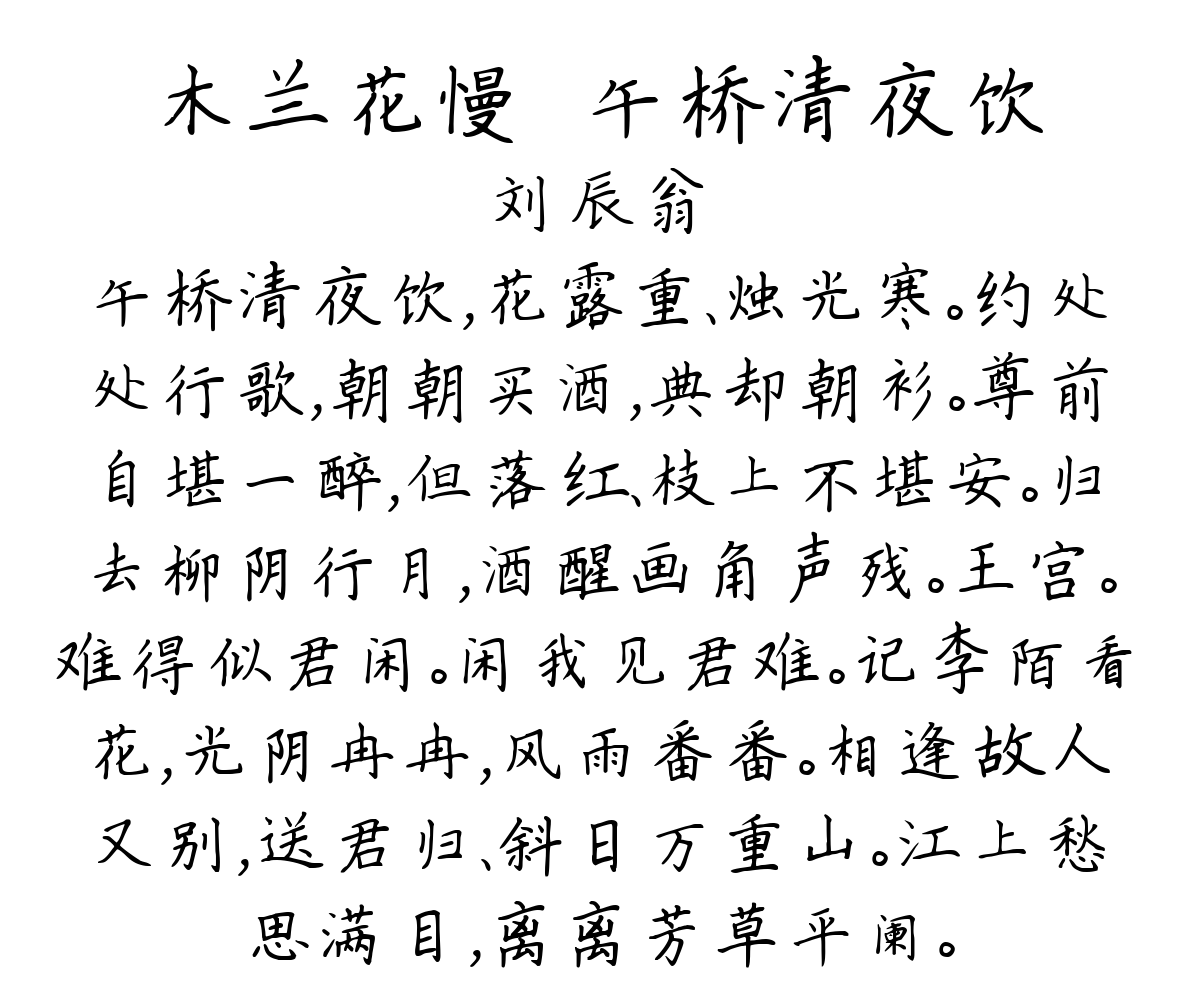 木兰花慢 午桥清夜饮
刘辰翁
午桥清夜饮,花露重、烛光寒。约处
处行歌,朝朝买酒,典却朝衫。尊前
自堪一醉,但落红、枝上不堪安。归
去柳阴行月,酒醒画角声残。王宫。
难得似君闲。闲我见君难。记李陌看
花,光阴冉冉,风雨番番。相逢故人
又别,送君归、斜日万重山。江上愁
思满目,离离芳草平阑。